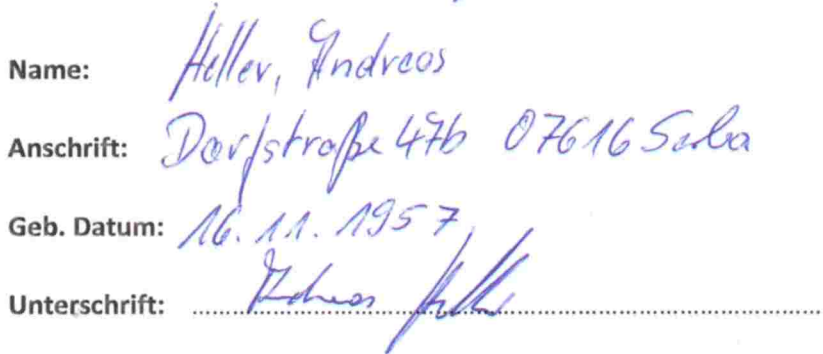 Name: Heller, Andreas
Anschrift: Dorfstraße 47b 07616 Serba
Geb. Datum: 16.11.1957
Unterschrift: Andreas Heller